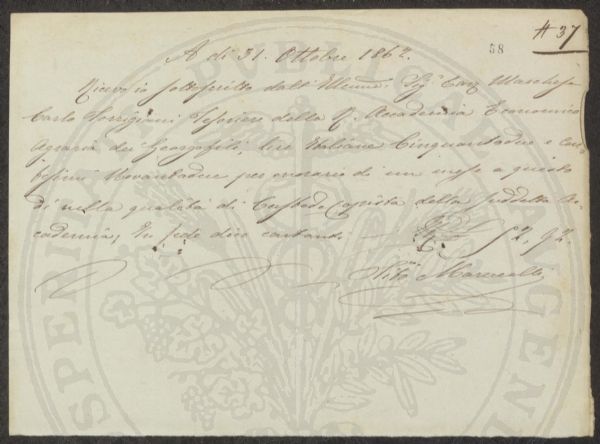 # 37
58
A dì 31. Ottobre 1862.
Ricevo io sottoscritto dall' Illmo. Sigr. Cav. Marchese
Carlo Torrigiani Tesoriere della R. Accademia Economico
Agraria dei Georgofili, lire Italiane Cinquantadue e Cen
tesimi Novantadue per onorario di un mese a questo
dì nella qualità di Custode copista della suddetta Ac
cademia, In fede dico contanti 52, 92
Tito
PUBLICAE
SPERITATI AUGEND